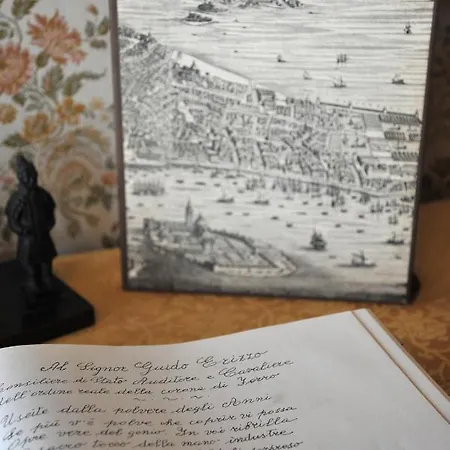 Al Signor Guido Erizzo
Consigliere di Stato Auditore e Cavaliere
dell'ordine reale della corona di Ferro
Uscite dalla polvere degli Anni
Se più v'è polve che coprir vi possa
Opre vere del genio. In voi rifrulla
sacro tocco della mano industre